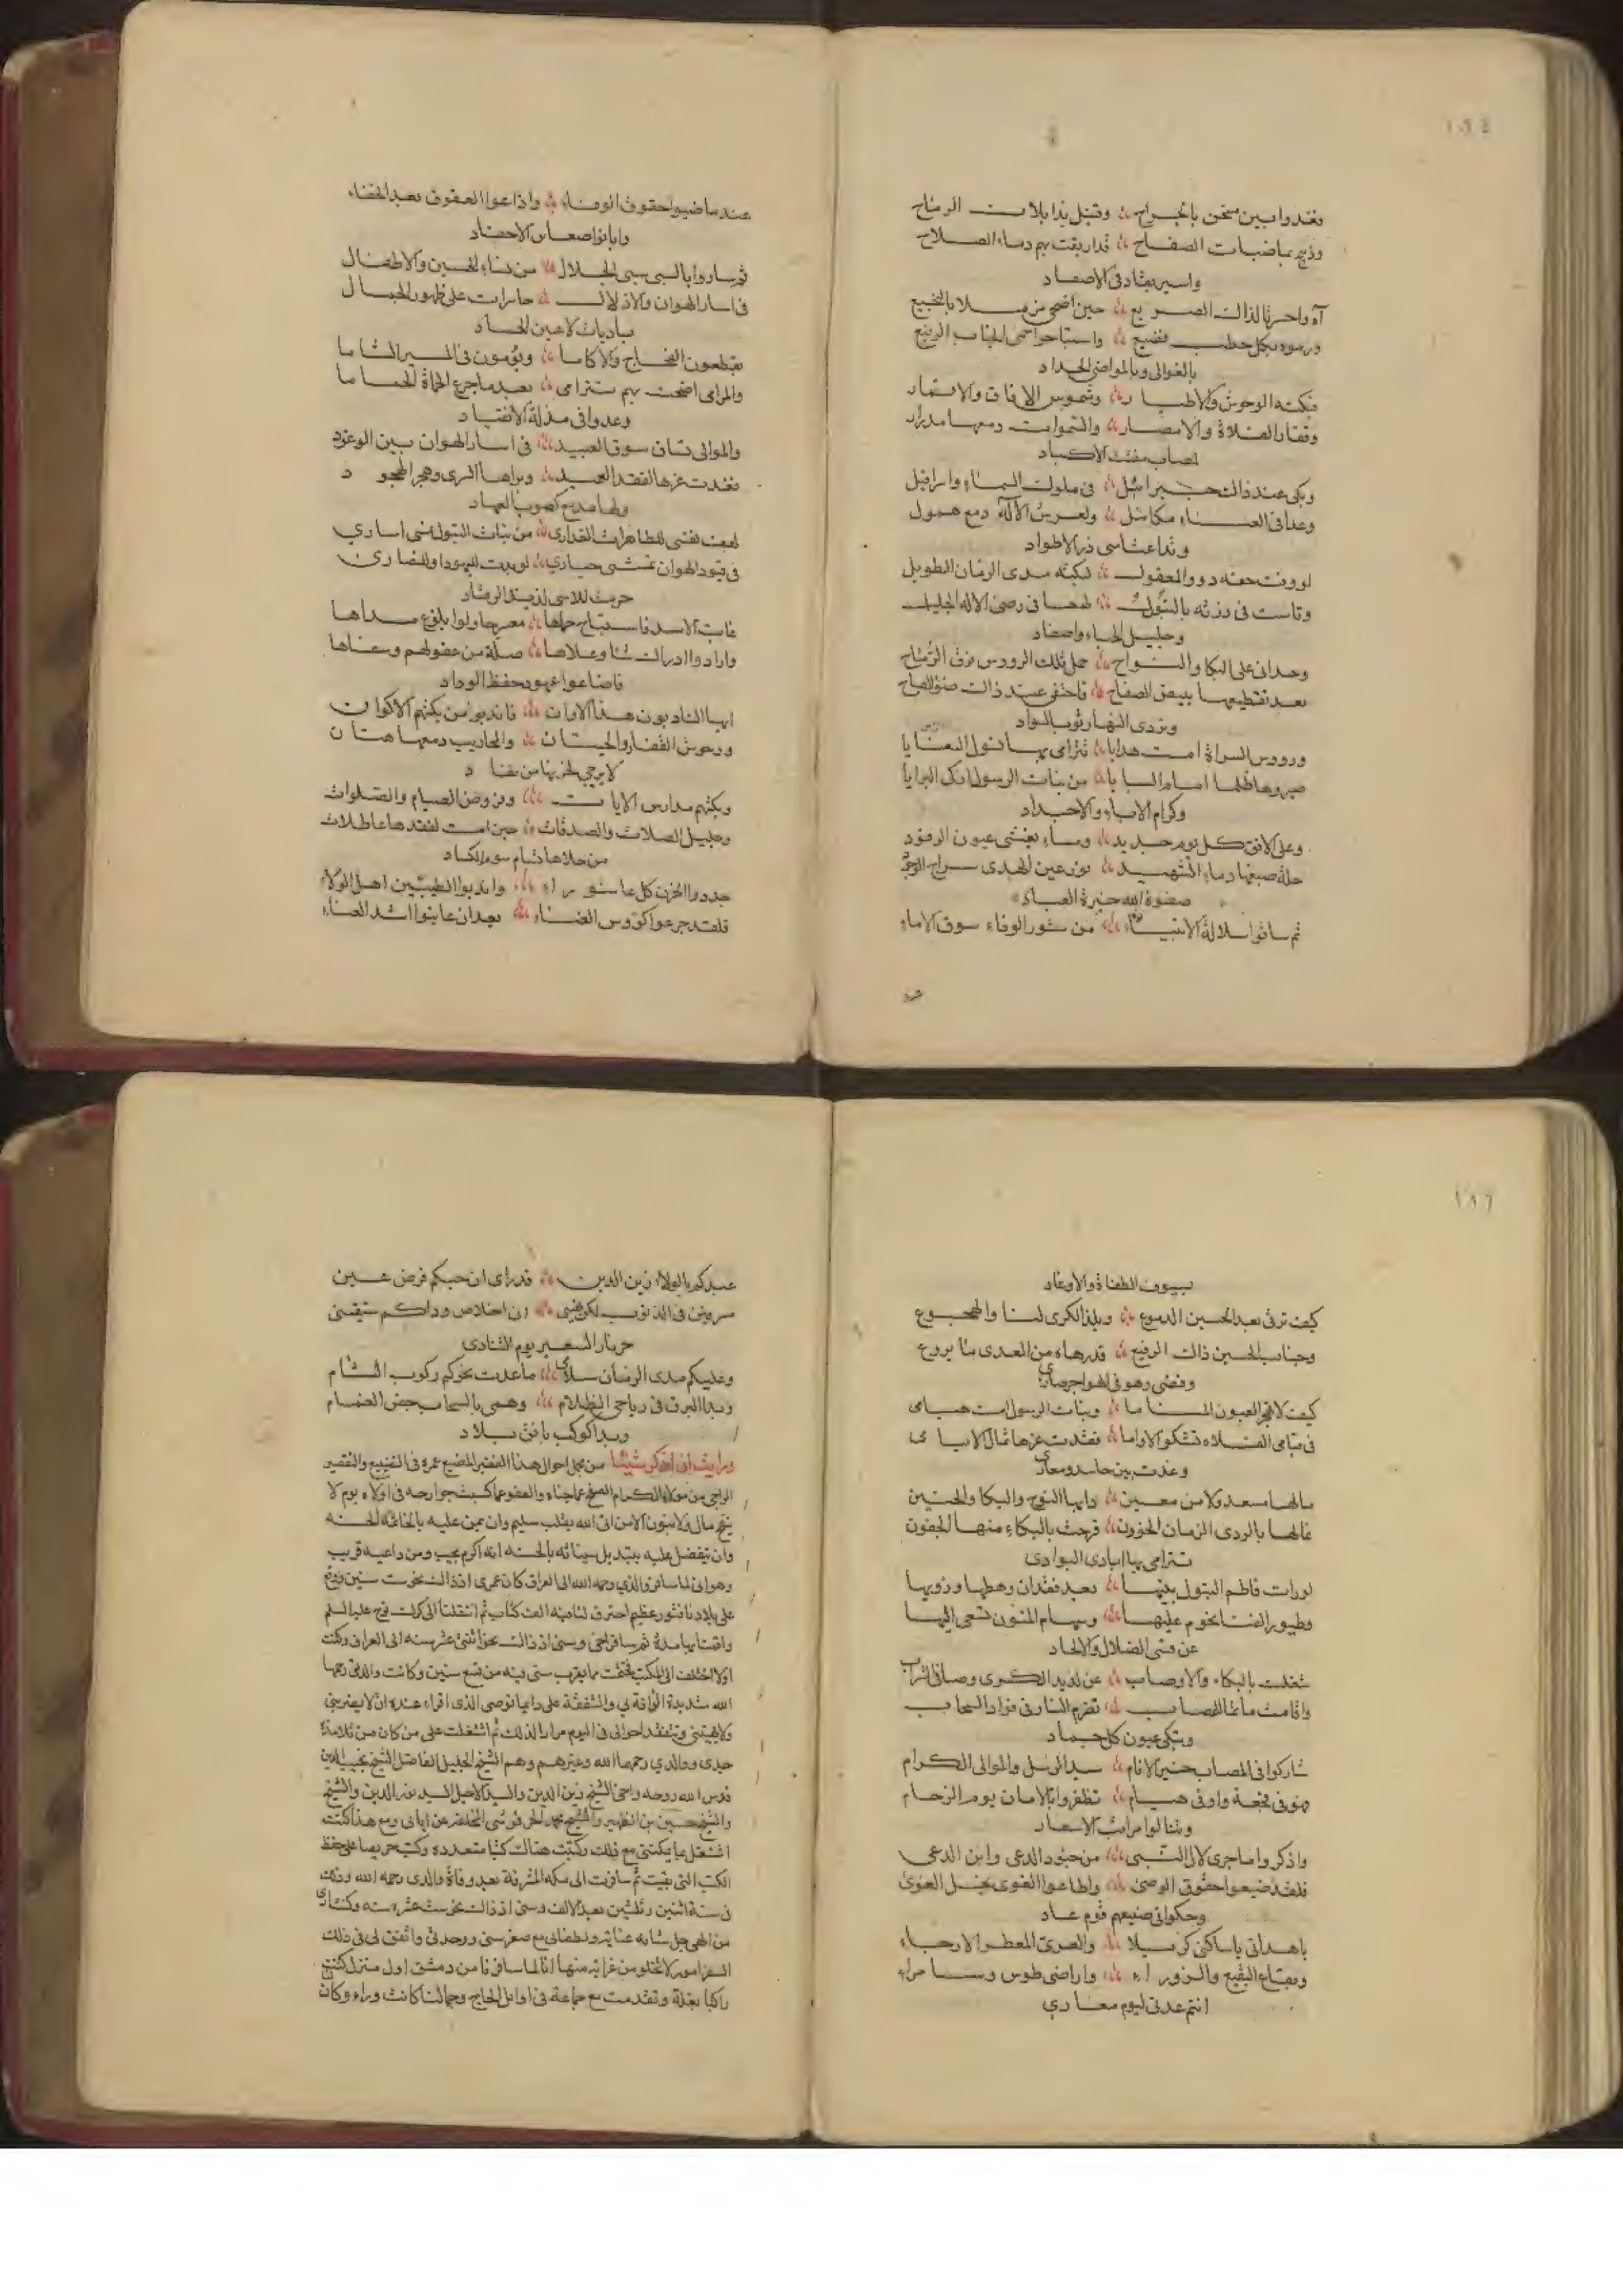 ١٨٤
وغدوا بين مثخن بالجراح وقتيل بذابلات الرماح
وذبيح بماضيات الصفاح قد اريقت بهم دماء الصلاح
واسير يقاد في الاصفاد
آه واحربا لذاك الصريع حين اضحى مزملا بالنجيع
ورموه بكل خطب فضيع واستباحوا حمى الجناب الرفيع
بالعوالي وبالمواضي الحداد
فبكته الوحوش والاطيار وشموس الافاق والاقمار
وقفار الفلاة والامصار والسموات دمعها مدرار
لمصاب مفتت الاكباد
وبكى عند ذاك جبرائيل في ملوك السماء واسرافيل
وغدا في العناء ميكائيل ولعرش الآله دمع همول
وتداعت اسى ذرى الاطواد
لو وفت حقه ذوو المعقول لبكته مدى الزمان الطويل
وتاست في رزئه بالبتول طمعا في رضى الاله الجليل
وجليل الحباء والاصفاد
وحداني على البكا والنواح حمل تلك الرؤس فوق الرماح
بعد تقطيعها ببيض الصفاح فاختفى عند ذاك ضوء الصباح
وتردى النهار ثوب السواد
ورووس السراة امست هدايا تترامى بها فحول المنايا
صيروها ظلما امام السبايا من بنات الرسول ازكى البرايا
وكرام الاباء والاجداد
وعلى الافق كل يوم جديد ومساء يغشى عيون الرقود
حلة صبغها دماء الشهيد نور عين الهدى سراج الوجود
صفوة الله خيرة العباد
ثم ساقوا سلالة الانبياء من ستور الوفاء سوق الاماء
عند ما ضيعوا حقوق الوفاء واذاعوا العقوق بعد الخفاء
وابانوا ضغاين الاحقاد
ثم ساروا بالسبي سبي الجلال من نساء الحسين والاطفال
في اسار الهوان والاذلال حاسرات على ظهور الجمال
باديات لاعين الحساد
يقطعون الفجاج والاكاما ويؤمون في المسير الشاما
والمرامي اضحت بهم تترامى بعد ما جرع الحماة الحماما
وغدوا في مذلة الانقياد
والموالي تساق سوق العبيد في اسار الهوان بين الوغود
فغدت عزها لفقد العميد وبراها السرى وهجر الهجود
ولها مدمع كصوب العهاد
لهف نفسي للطاهرات العذارى من بنات البتول تمشي اسارى
في قيود الهوان تمشي حيارى لو بدت لليهود والنصارى
حرمت للاسى لذيذ الرقاد
غاب الاسد فاستباح حماها معرجا ولوا بلوغ مداها
وارادوا ادراك شاو علاها ضلة من عقولهم وسفاها
فاضاعوا عهود حفظ الوداد
ايها النادبون هذا الاوان فاندبوا من بكتهم الاكوان
ووحوش القفار والحيتان والمحاريب دمعها هتان
لا يرجى لحزنها من نفاد
وبكتهم مدارس الايات وفروض الصيام والصلوات
وجليل الصلات والصدقات حين امست لفقدها عاطلات
من حلاها تسام سوم الكساد
جددوا الحزن كل عاشوراء واندبوا الطيبين اهل الولاء
فلقد جرعوا كؤوس الفناء بعد ان عاينوا اشد العناء
١٨٦
بسيوف الطغاة والاوغاد
كيف ترقى بعد الحسين الدموع ويلذ الكرى لنا والهجوع
وجناب الحسين ذاك الرفيع قد رماه من العدى ما يروع
وقضى وهو في الهواجر صادي
كيف لا تهجر العيون المناما وبنات الرسول امست هيامى
في قيامى الفلاة تشكو الاواما فقدت عزها ثمال الايامى
وغدت بين حاسد ومعادي
ما لها مسعد ولا من معين دابها النوح والبكا والحنين
غالها بالردى الزمان الخؤون قرحت بالبكاء منها الجفون
تترامى بها ايادي البوادي
لو رات فاطم البتول بنيها بعد فقدان رهطها وذويها
وطيور الفنا تحوم عليها وسهام المنون تسعى اليها
عن قسي الضلال والالحاد
شغلت بالبكاء والاوصاب عن لذيذ الكرى وصافي الشراب
واقامت ماتما للمصاب تضرم النار في فؤاد السحاب
وتبكي عيون كل جماد
شاركوا في المصاب خير الانام سيد الرسل والموالي الكرام
فهو في فجعة وفي هيام تظفروا بالامان يوم الزحام
وتنالوا مراتب الاسعاد
واذكروا ما جرى لال النبي من جنود الدعي وابن الدعي
فلقد ضيعوا حقوق الوصي واطاعوا الغوي بخل الغوي
وحكوا في صنيعهم قوم عاد
يا هداتي يا ساكني كربلاء والغري المعطر الارجاء
وبقاع البقيع والزوراء واراضي طوس وسامراء
انتم عدتي ليوم معادي
عبدكم بالولاء زين الدين قد راى ان حبكم فرض عين
سروني في الذنوب لكن يقيني ان اخلاص ودادكم سيقيني
حر نار السعير يوم التنادي
وعليكم مدى الزمان سلامي ما غدت نحوكم ركوب الشام
وبدا البرق في دياجي الظلام وهمى بالسحاب جفن الغمام
وبدا كوكب بافق بلاد
ورايت ان اذكر شيئا من مجمل احوال هذا الفقير المضيع عمره في التضييع والتقصير
الراجي من مولاه الكرام الصفح عما جناه والعفو عما كسبت جوارحه في اولاه يوم لا
ينفع مال ولا بنون الا من اتى الله بقلب سليم وان يمن عليه بالخاتمة الحسنة
وان يتفضل عليه بتبديل سيئاته بالحسنة انه اكرم مجيب ومن داعيه قريب
وهو اني لما سافر والدي رحمه الله الى العراق كان عمري اذ ذاك نحو ست سنين ووقع
على بلادنا فتور عظيم احترق لنا فيه الف كتاب ثم انتقلنا الى كرك نوح عليه السلم
واقمنا بها مدة ثم سافر اخي وسني اذ ذاك نحو اثنتى عشر سنه الى العراق وكنت
اولا اختلف الى المكتب فختمت ما يقرب سني فيه من تسع سنين وكانت والدتي رحمها
الله شديدة الرأفة بي والشفقة علي دايما توصي الذي اقراء عنده ان لا يضربني
ولا يهينني وتتفقد احوالي في اليوم مرارا لذلك ثم اشتغلت على من كان من تلامذة
جدي ووالدي رحمهما الله وغيرهم وهم الشيخ الجليل الفاضل الشيخ نجيب الدين
قدس الله روحه واخي الشيخ زين الدين والسيد الاجل السيد نور الدين والشيخ
والشيخ حسين بن الظهير والشيخ محمد الحرفوشي المتخلفين عن ابائي ومع هذا كنت
اشتغل بما يمكنني مع ذلك وكتبت هناك كتبا متعددة وكنت حريصا على حفظ
الكتب التي بقيت ثم سافرت الى مكه المشرفة بعد وفاة والدي رحمه الله وذلك
في سنة اثنين وثلثين بعد الالف وسني اذ ذاك نحو ست عشرة سنه وكنت ارى
من الهي جل شانه عناية ولطفا لي مع صغر سني ووحدتي واتفق لي في ذلك
السفر امور لا تخلو من غرابة منها انا لما سافرنا من دمشق اول منزل كنت
راكبا بغلة وتقدمت مع جماعة في اوائل الحاج وجمالنا كانت وراء وكان